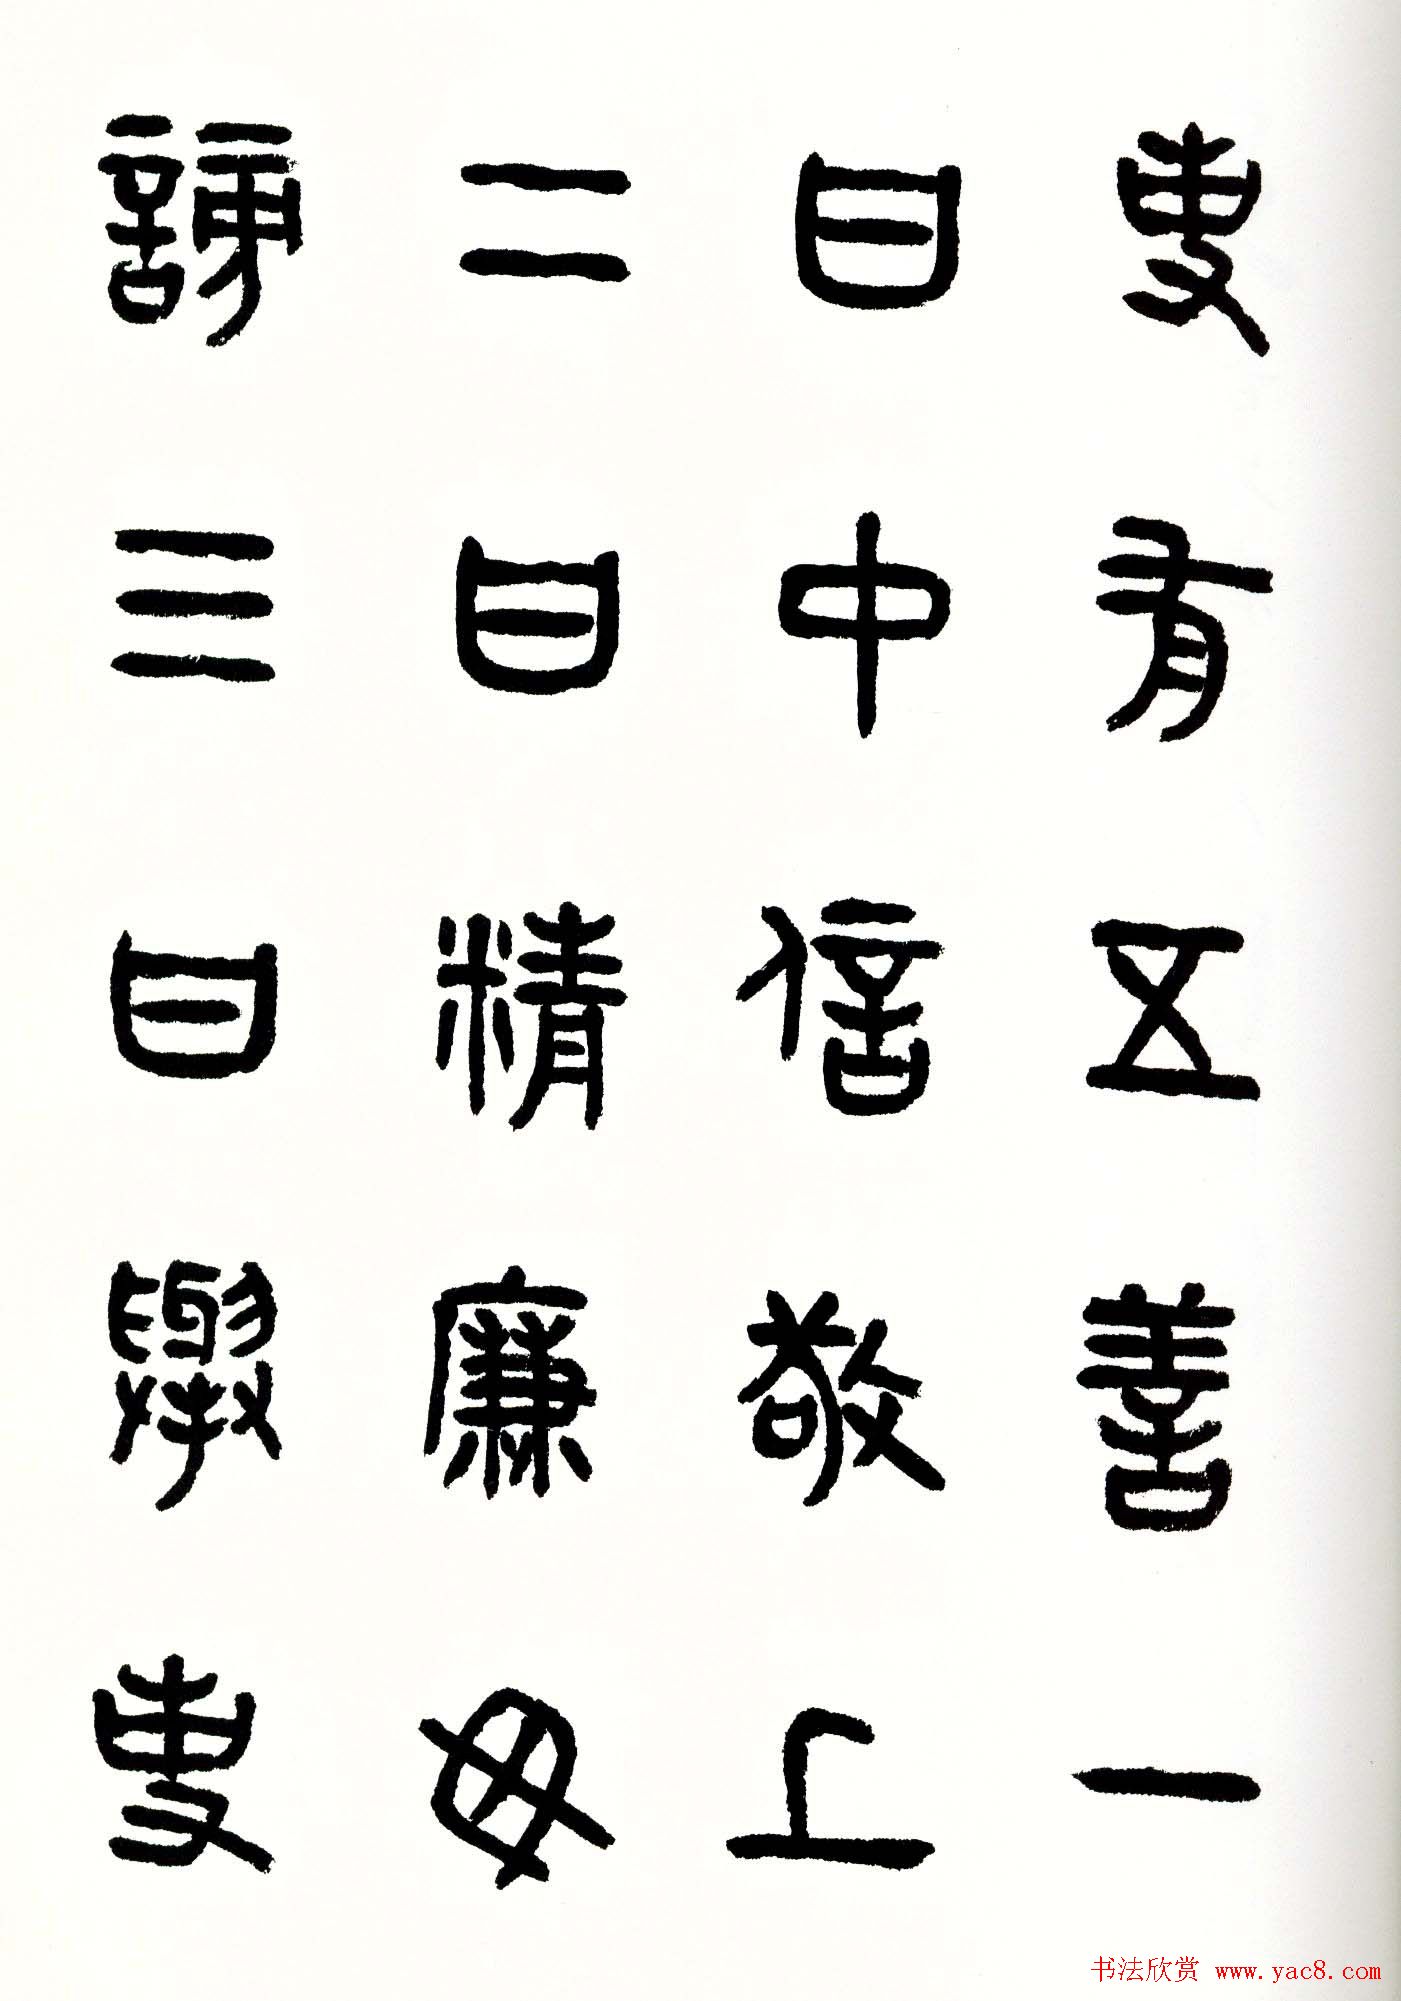 吏有五善一
曰中信敬上
二曰精廉毋
謗三曰舉事
书法欣赏 www.yac8.com